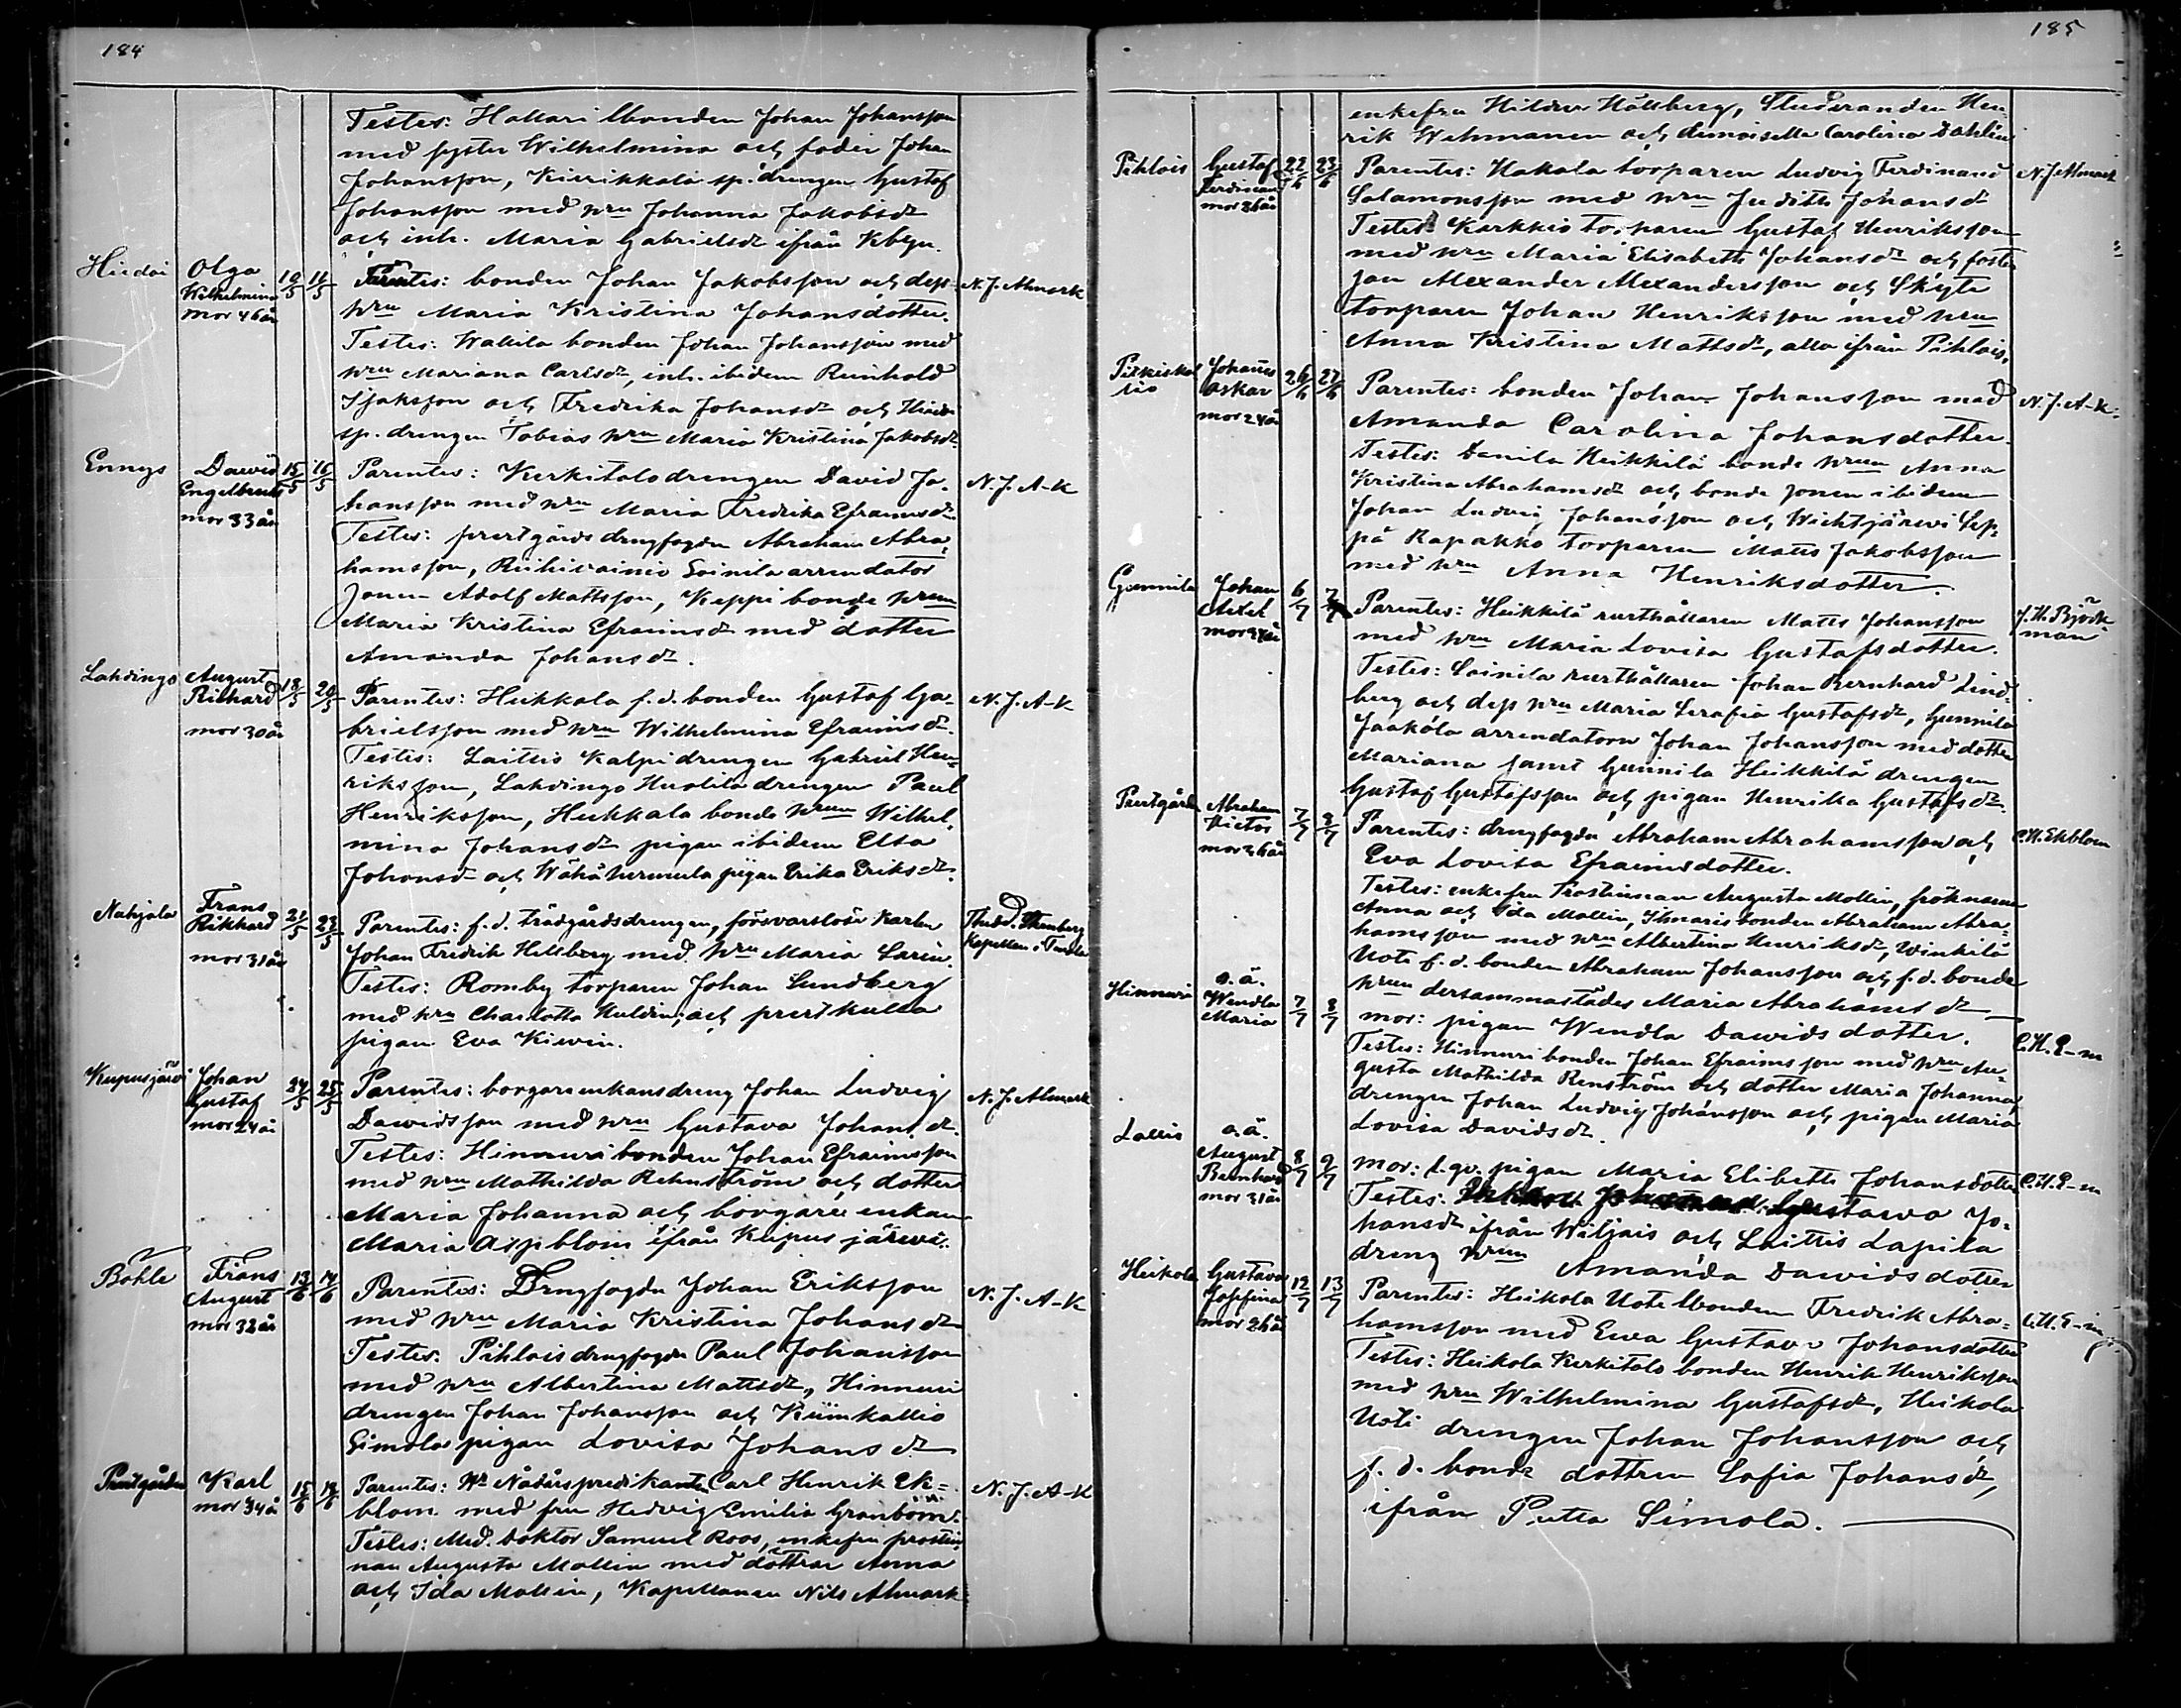 184
Testes: Hallari lbonden Johan Johansson
med syster Wilhelmina och fader Johan
Johansson, Kierikkala sp. drengen Gustaf
Johansson med hru Johanna Jakobsdr
och inh. Maria Gabrielsdr ifrån Kbyn.
Hiidoi Olga Wilhelmina mor 46 år 10/5 11/5
Parentes: bonden Johan Jakobsson och dess N. J. Almark
hru Maria Kristina Johansdotter.
Testes: Wallila bonden Johan Johansson med
hru Mariana Carlsdr, inh. ibidem Reinhold
Isaksson och Fredrika Johansdr och Hiidoi
sp. drengen Tobias hru Maria Kristina Jakobsdr
Ennys David Engelbrecht mor 33 år 15/5 16/5
Parentes: Kerkitalo drengen David Jo- N. J. A-k
hansson med hru Maria Fredrika Efraimsdr
Testes: prestgårds drengfogden Abraham Abra-
hamsson, Riihivainio Soinila arrendator
sonen Adolf Mattsson, Keppi bonde hrun
Maria Kristina Efraimsdr med dotter
Amanda Johansdr.
Lahdingo August Richard mor 30 år 18/5 20/5
Parentes: Heikkala f. d. bonden Gustaf Ga- N. J. A-k
brielsson med hru Wilhelmina Efraimsdr.
Testes: Laitis Kalpi drengen Gabriel Hen-
riksson, Lahdingo Huolila drengen Paul
Henriksson, Heikkala bonde hrun Wilhel-
mina Johansdr pigan ibidem Elsa
Johansd och Wähä pigan Erika Eriksdr.
Nuhjala Frans Rikhard mor 31 år 21/5 23/5
Parentes: f. d. trädgårdsdrengen, försvarslöse karlen
Johan Fredrik Hellberg med hru Maria Karin. Kapellan i
Testes: Romby torparen Johan Sundberg
med hru Charlotta Huldin, och prestkulla
pigan Eva Kiewin.
Kupusjärvi Johan Gustaf mor 24 år 24/5 25/5
Parentes: borgareenkansdreng Johan Ludvig N. J. Almark
Dawidsson med hru Gustava Johansdr.
Testes: Hinnuri bonden Johan Efraimsson
med hru Mathilda Rehnström och dotter
Maria Johanna och borgare enkan
Maria Aspblom ifrån Kupusjärwi.
Bohle Frans August mor 32 år 13/6 14/6
Parentes: Drengfogden Johan Eriksson N. J. A-k
med hru Maria Kristina Johansdr
Testes. Pihlois drengfogden Paul Johansson
med hru Albertina Mattsdr, Hinnuri
drengen Johan Johansson och Kiimkallio
Simola pigan Lovisa Johansdr
Prestgården Karl mor 34 år 15/6 19/6
Parentes: Hr Nådårspredikanten Carl Henrik Ek- N. J. A-k
blom med fru Hedvig Emilia Granbom.
Testes: Med. Doktor Samuel Roos, enkefru prostin-
nan Augusta Mollin med döttrar Anna
och Ida Mollin, Kapellanen Nils Almark
185
enkefru Hilda Hallberg, Studeranden Hen-
rik Wehmanen och demoiselle Carolina Dahlin
Pihlois Gustaf Ferdinand mor 36 år 22/6 23/6
Parentes: Hakala torparen Ludvig Ferdinand N. J. Almark
Salamonsson med hru Judith Johansdr
Testes: Karkkio torparen Gustaf Henriksson
med hru Maria Elisabeth Johansdr och foster
son Alexander Alexandersson och Skytte
torparen Johan Henriksson med hru
Anna Kristina Mattsdr, alla ifrån Pihlois.
Pitkiskallio Johannes Oskar mor 24 år 26/6 27/6
Parentes: bonden Johan Johansson med N. J. A-k.
Amanda Carolina Johansdotter.
Testes: Danila Heikkilä bonde hrun Anna
Kristina Abrahamsdr och bonde sonen ibidem
Johan Ludvig Johansson och Wichtjärwi Sep-
pä Rapakko torparen Matts Jakobsson
med hru Anna Henriksdotter.
Gunnila Johan Axel 6/7 7/7
Parentes: Heikkilä rusthållaren Matts Johansson J. H. Björk-
med hru Maria Lovisa Gustafsdotter. man
Testes: Soinila rusthållaren Johan Bernhard Lind-
berg och dess hru Maria Serafia Gustafsdr, Gunnila
Jaakola arrendatorn Johan Johansson med dotter
Mariana samt Gunnila Heikkilä drengen
Gustaf Gustafsson och pigan Henrika Gustafsdr.
Prestgården Abraham Victor mor 36 år 7/7 8/7
Parentes: drengfogden Abraham Abrahamsson och C. H. Ekblom
Eva Lovisa Efraimsdotter.
Testes: enkefru Prostinnan Augusta Mollin, fröknarna
Anna och Ida Mollin, Ihnaris bonden Abraham Abra-
hamsson med hru Albertina Henriksdr, Winkilä
Uoti f. d. bonden Abraham Johansson och f. d. bonde
hrun dersammastädes Maria Abrahamsdr
Hinnuri o. ä. Wendla Maria 7/7 8/7
mor: pigan Wendla Dawidsdotter. C. H. E-m
Testes: Hinnuri bonden Johan Efraimsson med hru Au-
gusta Mathilda Renström och dotter Maria Johanna,
drengen Johan Ludvig Johansson och pigan Maria
Lovisa Davidsdr.
Lallis o. ä. August Bernhard mor 31 år 8/7 9/7
mor: l. qv. pigan Maria Elibeth Johansdotter C. H. E-m
Testes: Gustawa Jo-
hansdr ifrån Wiljais och Laittis Lapila
dreng hrun Amanda Dawidsdotter
Heikola Gustava Josefina mor 26 år 12/7 13/7
Parentes: Heikola Uoti lbonden Fredrik Abra- C. H. E-m
hamsson med Ewa Gustava Johansdotter
Testes: Heikola Kerkitalo bonden Henrik Henriksson
med hru Wilhelmina Gustafsdr, Heikola
Uoti drengen Johan Johansson och
f. d. bonde dottren Sofia Johansdr,
ifrån Putta Simola.